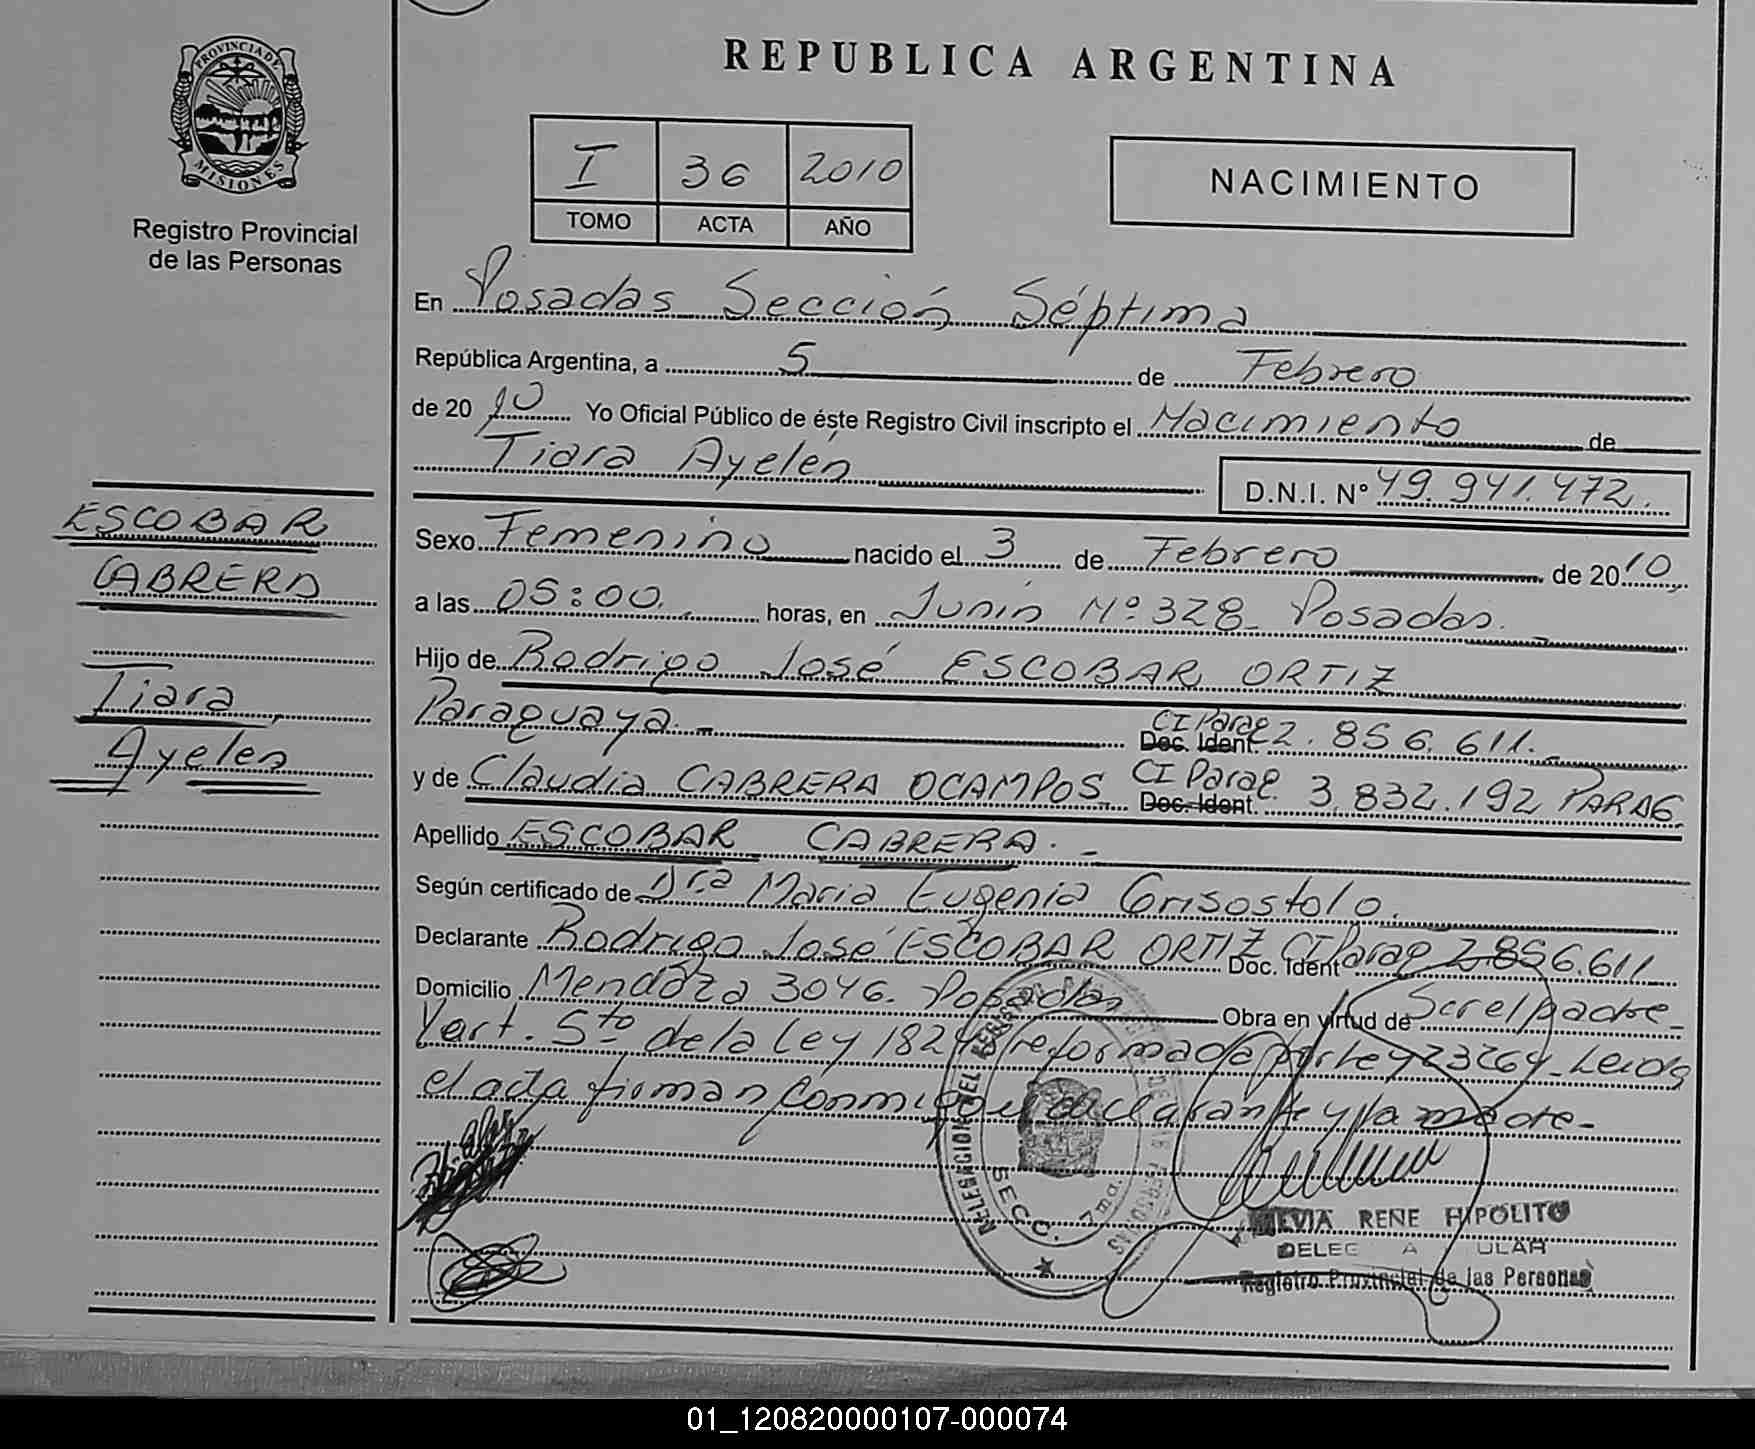 REPUBLICA ARGENTINA
PROVINCIA DE
MISIONES
Registro Provincial
de las Personas
I 36 2010
TOMO ACTA AÑO
NACIMIENTO
En Posadas Sección Séptima
República Argentina, a 5 de Febrero
de 20 10 Yo Oficial Público de éste Registro Civil inscripto el Nacimiento de
Tiara Ayelén D.N.I. Nº 49.941.472.
ESCOBAR
CABRERA
Tiara
Ayelen
Sexo Femenino nacido el 3 de Febrero de 20 10
a las 05:00 horas, en Junín Nº 328 Posadas.
Hijo de Rodrigo José ESCOBAR ORTIZ
Paraguaya.- CI Parag Doc. Ident. 2.856.611.-
y de Claudia CABRERA OCAMPOS CI Parag Doc. Ident. 3.832.192 PARAG
Apellido ESCOBAR CABRERA.-
Según certificado de Dra Maria Eugenia Grisostolo.
Declarante Rodrigo José ESCOBAR ORTIZ Doc. Ident CI Parag 2856.611
Domicilio Mendoza 3046. Posadas Obra en virtud de Ser el padre
Yart. 5to de la Ley 18248 reformada por Ley 23264- Leida
el acta firman conmigo el declarante y la madre-
DELEGACION DEL REGISTRO
SECC. 7ma.
RENE HIPOLITO
Registro Provincial de las Personas
01_120820000107-000074